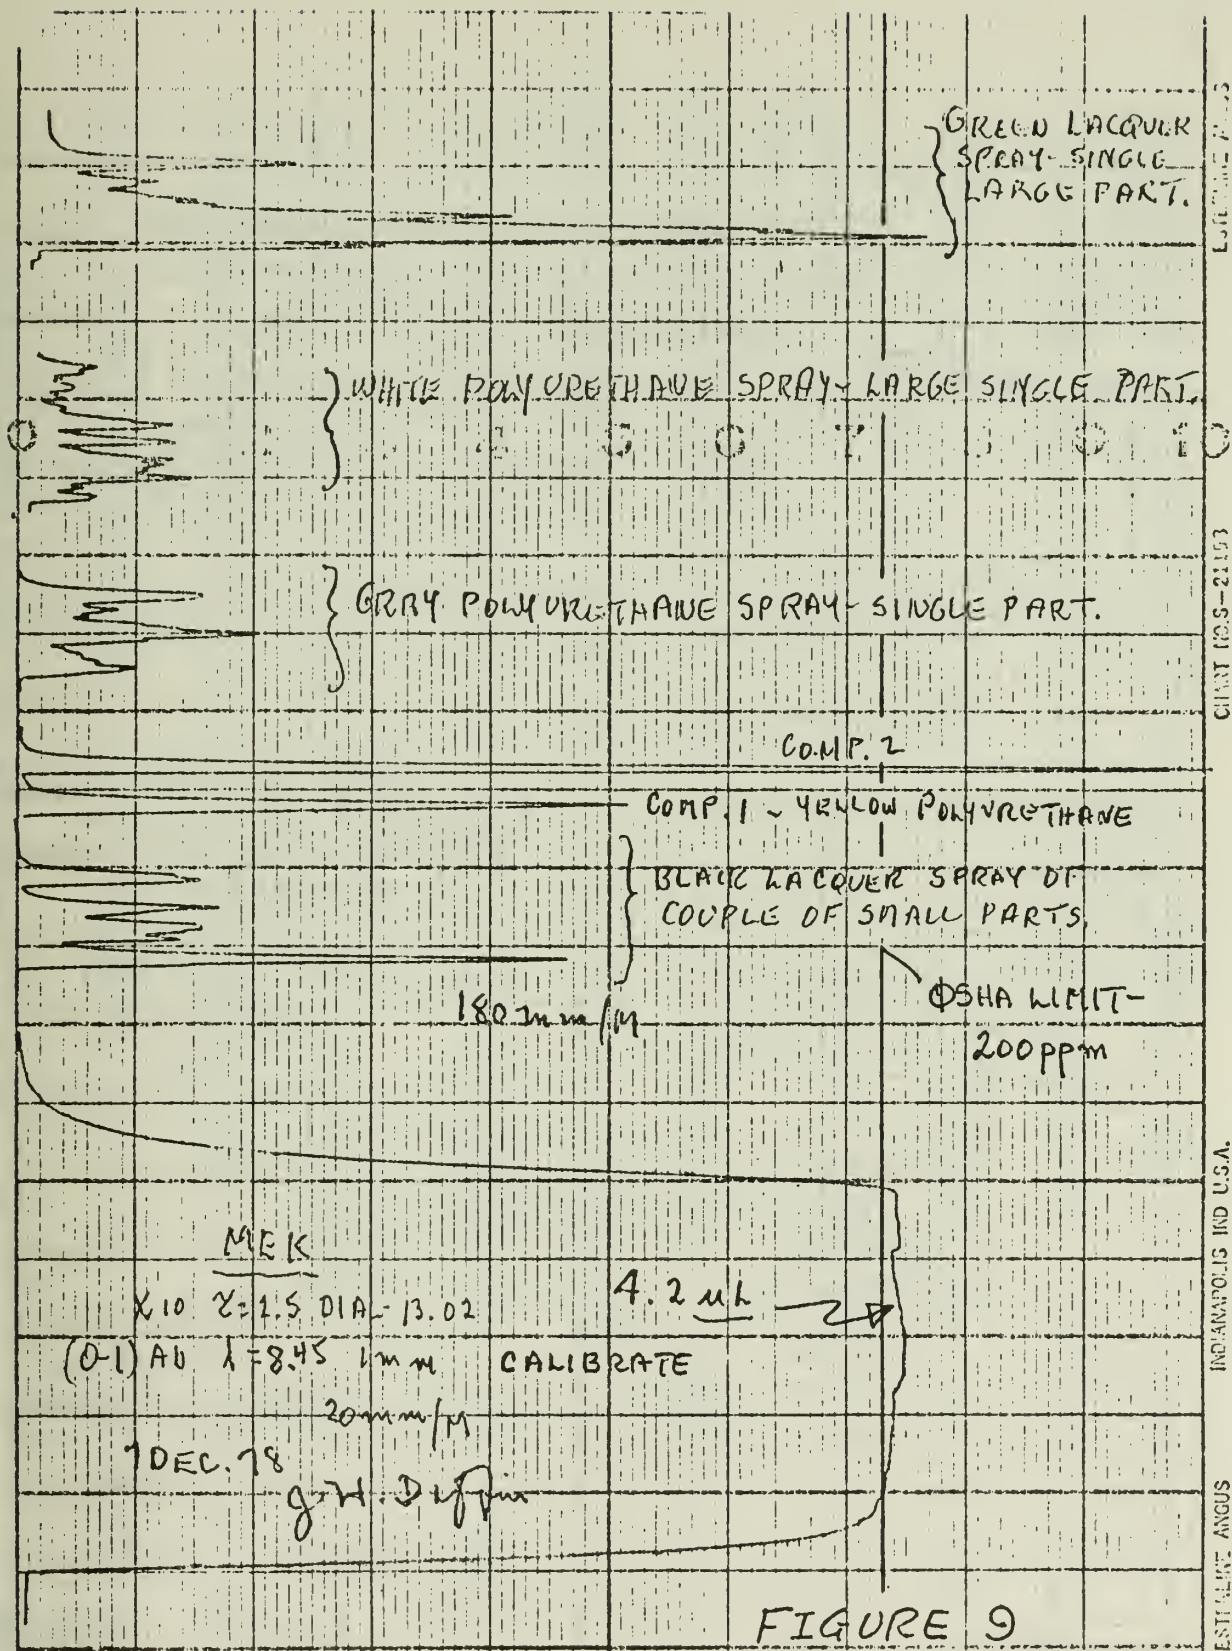 GREEN LACQUER
SPRAY-SINGLE
LARGE PART.
WHITE POLYURETHANE SPRAY-LARGE SINGLE PART.
GRAY POLYURETHANE SPRAY-SINGLE PART.
COMP. 2
COMP. 1 - YELLOW POLYURETHANE
BLACK LACQUER SPRAY OF
COUPLE OF SMALL PARTS.
180 mm/M
OSHA LIMIT-
200 ppm
MEK
X10 DIA- 13.02
4.2 uL
(0-1) λ=8.45 1mm CALIBRATE
20mm/M
7 DEC. 78
FIGURE 9
CHART NO.S-21103
INDIANAPOLIS IND U.S.A.
ANGUS